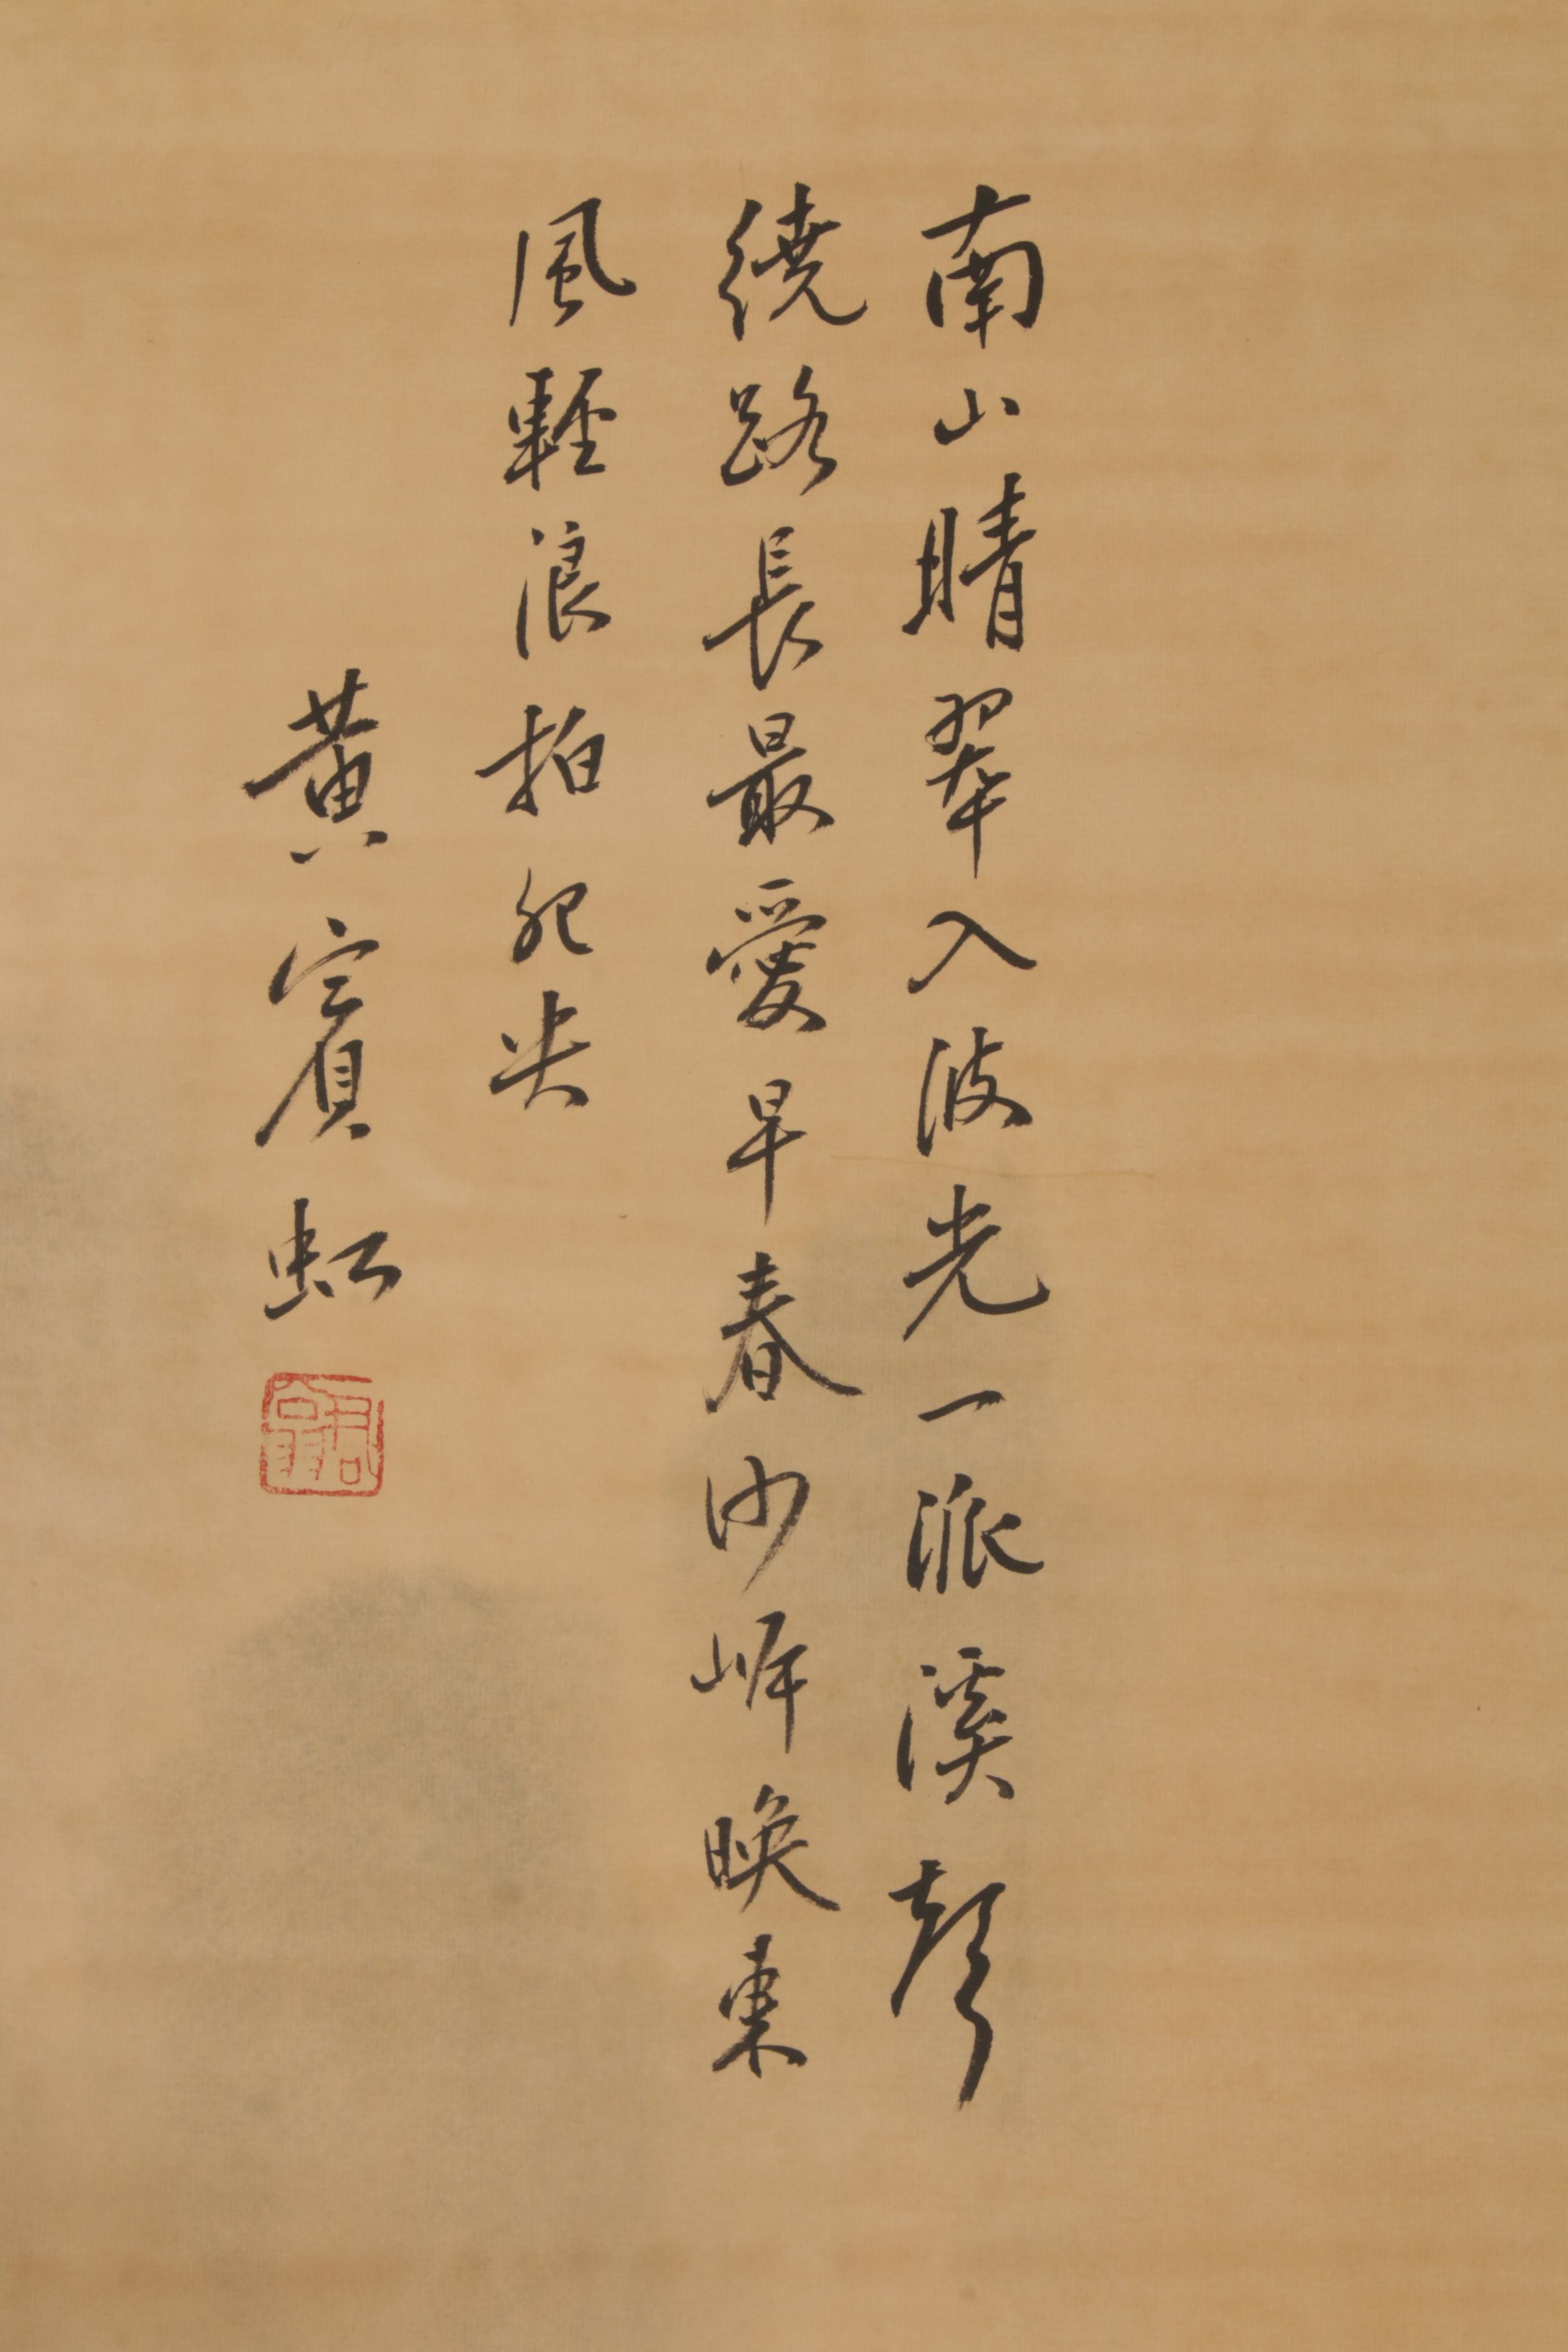 南山晴翠入波光一派溪聲
繞路長最愛早春沙岸暖東
風輕浪拍鴛央
黃賓虹